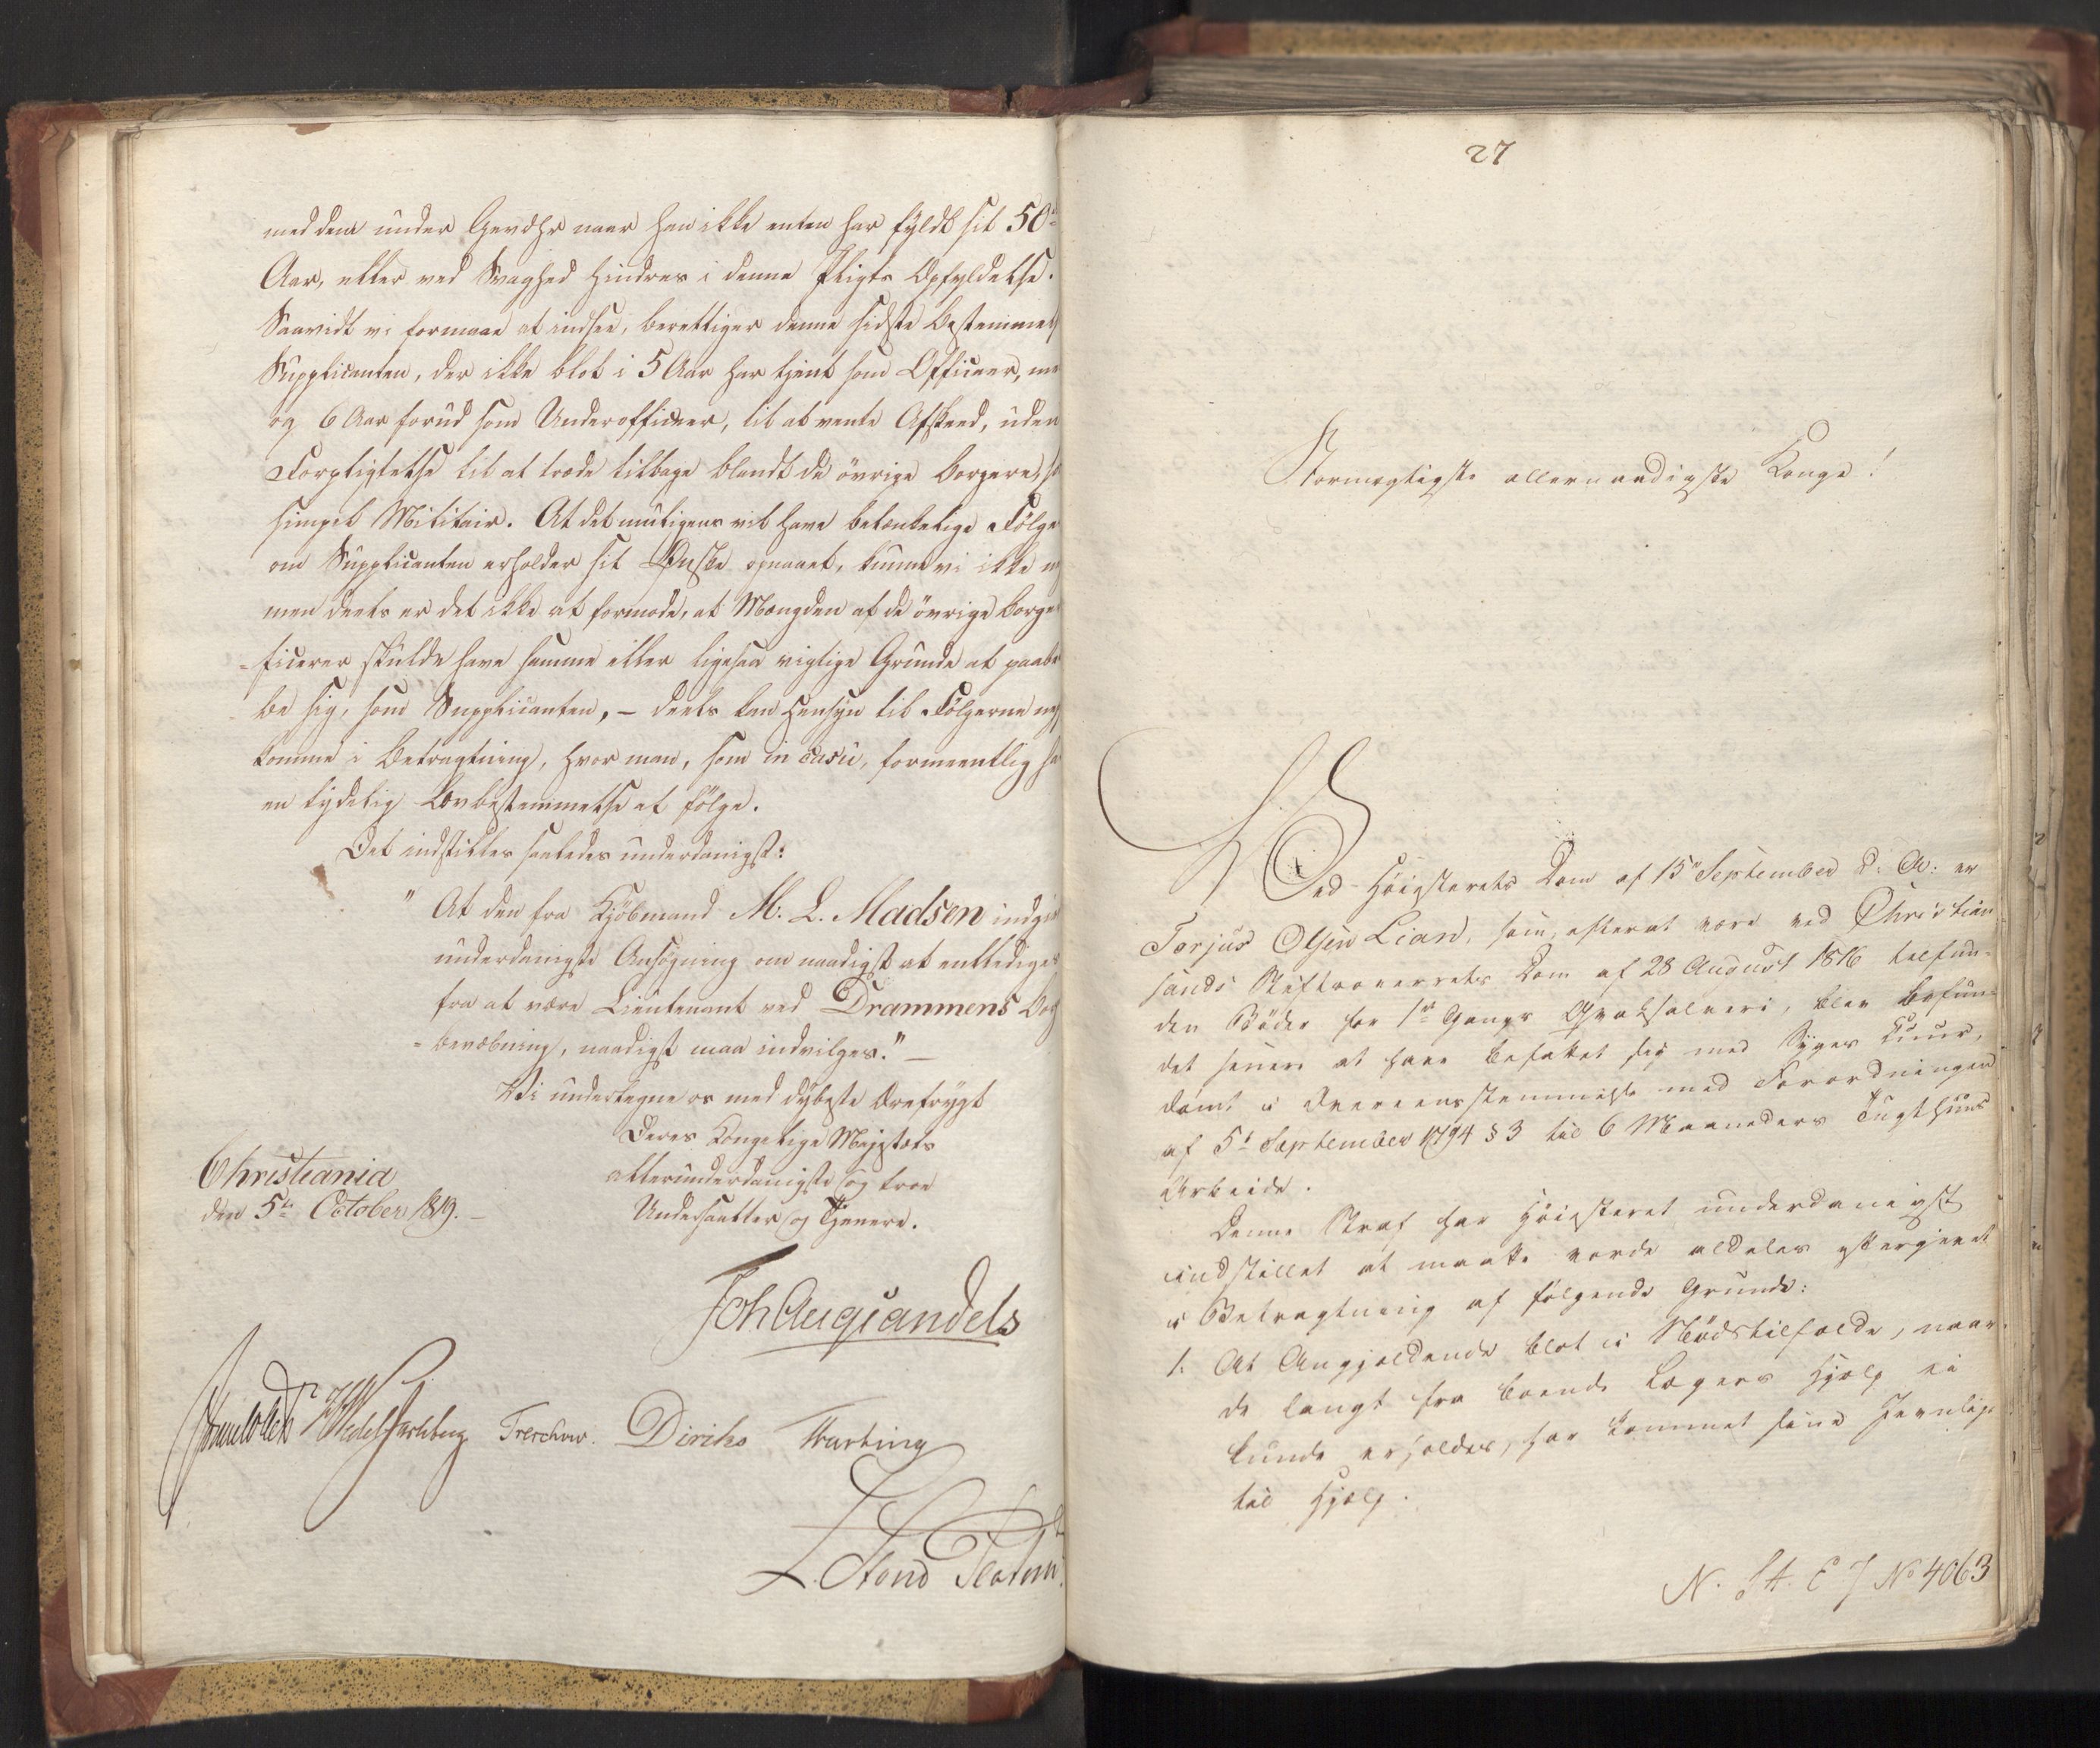 med dem under Gevæhr naar han ikke enten har fyldt sit 50de
Aar, eller ved Svaghed hindres i denne Pligts Opfyldelse.
Saavidt vi formaae at indsee, berettiger denne sidste Bestemmels
Supplicanten, der ikke blot i 5 Aar har tjent som Officeer, me
og 6 Aar forud som Underofficeer, til at vente Afskeed, uden
Forpligtelse til at træde tilbage blandt de övrige Borgere, so
simpel Militair. At det muligens vil have betænkelige Fölge
om Supplicanten erholder sit Ønske opnaaet, kunne vi ikke
men deels er det ikke at formode, at Mængden af de övrige Borge
=ficerer skulde have samme eller ligesaa vigtige Grunde at paabe
be sig, som Supplicanten, – deels kan Hensyn til Fölgerne
komme i Betragtning, hvor man, som in casu, formeentlig ha
en tydelig Lovbestemmelse at fölge.
Det indstilles saaledes underdanigst:
" At den fra Kjöbmand M. L. Madsen indgiv
underdanigste Ansögning om naadigst at entlediges
fra at være Lieutenant ved Drammens Bor
=bevæbning, naadigst maa indvilges." —
Vi undertegne os med dybeste Ærefrygt
Deres Kongelige Majestæts
allerunderdanigste og troe
Undersaatter og Tjenere.
Christiania
den 5te October 1819. –
Joh Aug Sandels
Sommerhielm Wedel Jarlsberg Treschow. Diriks Krebs Hartung
27
Stormægtigste allernaadigste Konge!
Ved Höiesterets Dom af 15de September d: A: er
Torjus Olsen Lian, som, efterat være ved Christian=
sands Stiftsoverrets Dom af 28 August 1816 tilfun=
den Böder for 1ste Gangs Qvaksalveri, blev befun=
det senere at have befattet sig med Syges Cuur,
dömt i Overeensstemmelse med Forordningen
af 5te September 1794 § 3 til 6 Maaneders Tugthuus
Arbeide.
Denne Straf har Höiesteret underdanigst
indstillet at maatte vorde aldeles eftergivet
i Betragtning af fölgende Grunde:
1. At Angjældende blot i Nödstilfælde, naar
de langt fra boende Lægers Hjælp ei
kunde erholdes, har kommet sine Jevnlige
til Hjælp.
N. St. E J No 4063